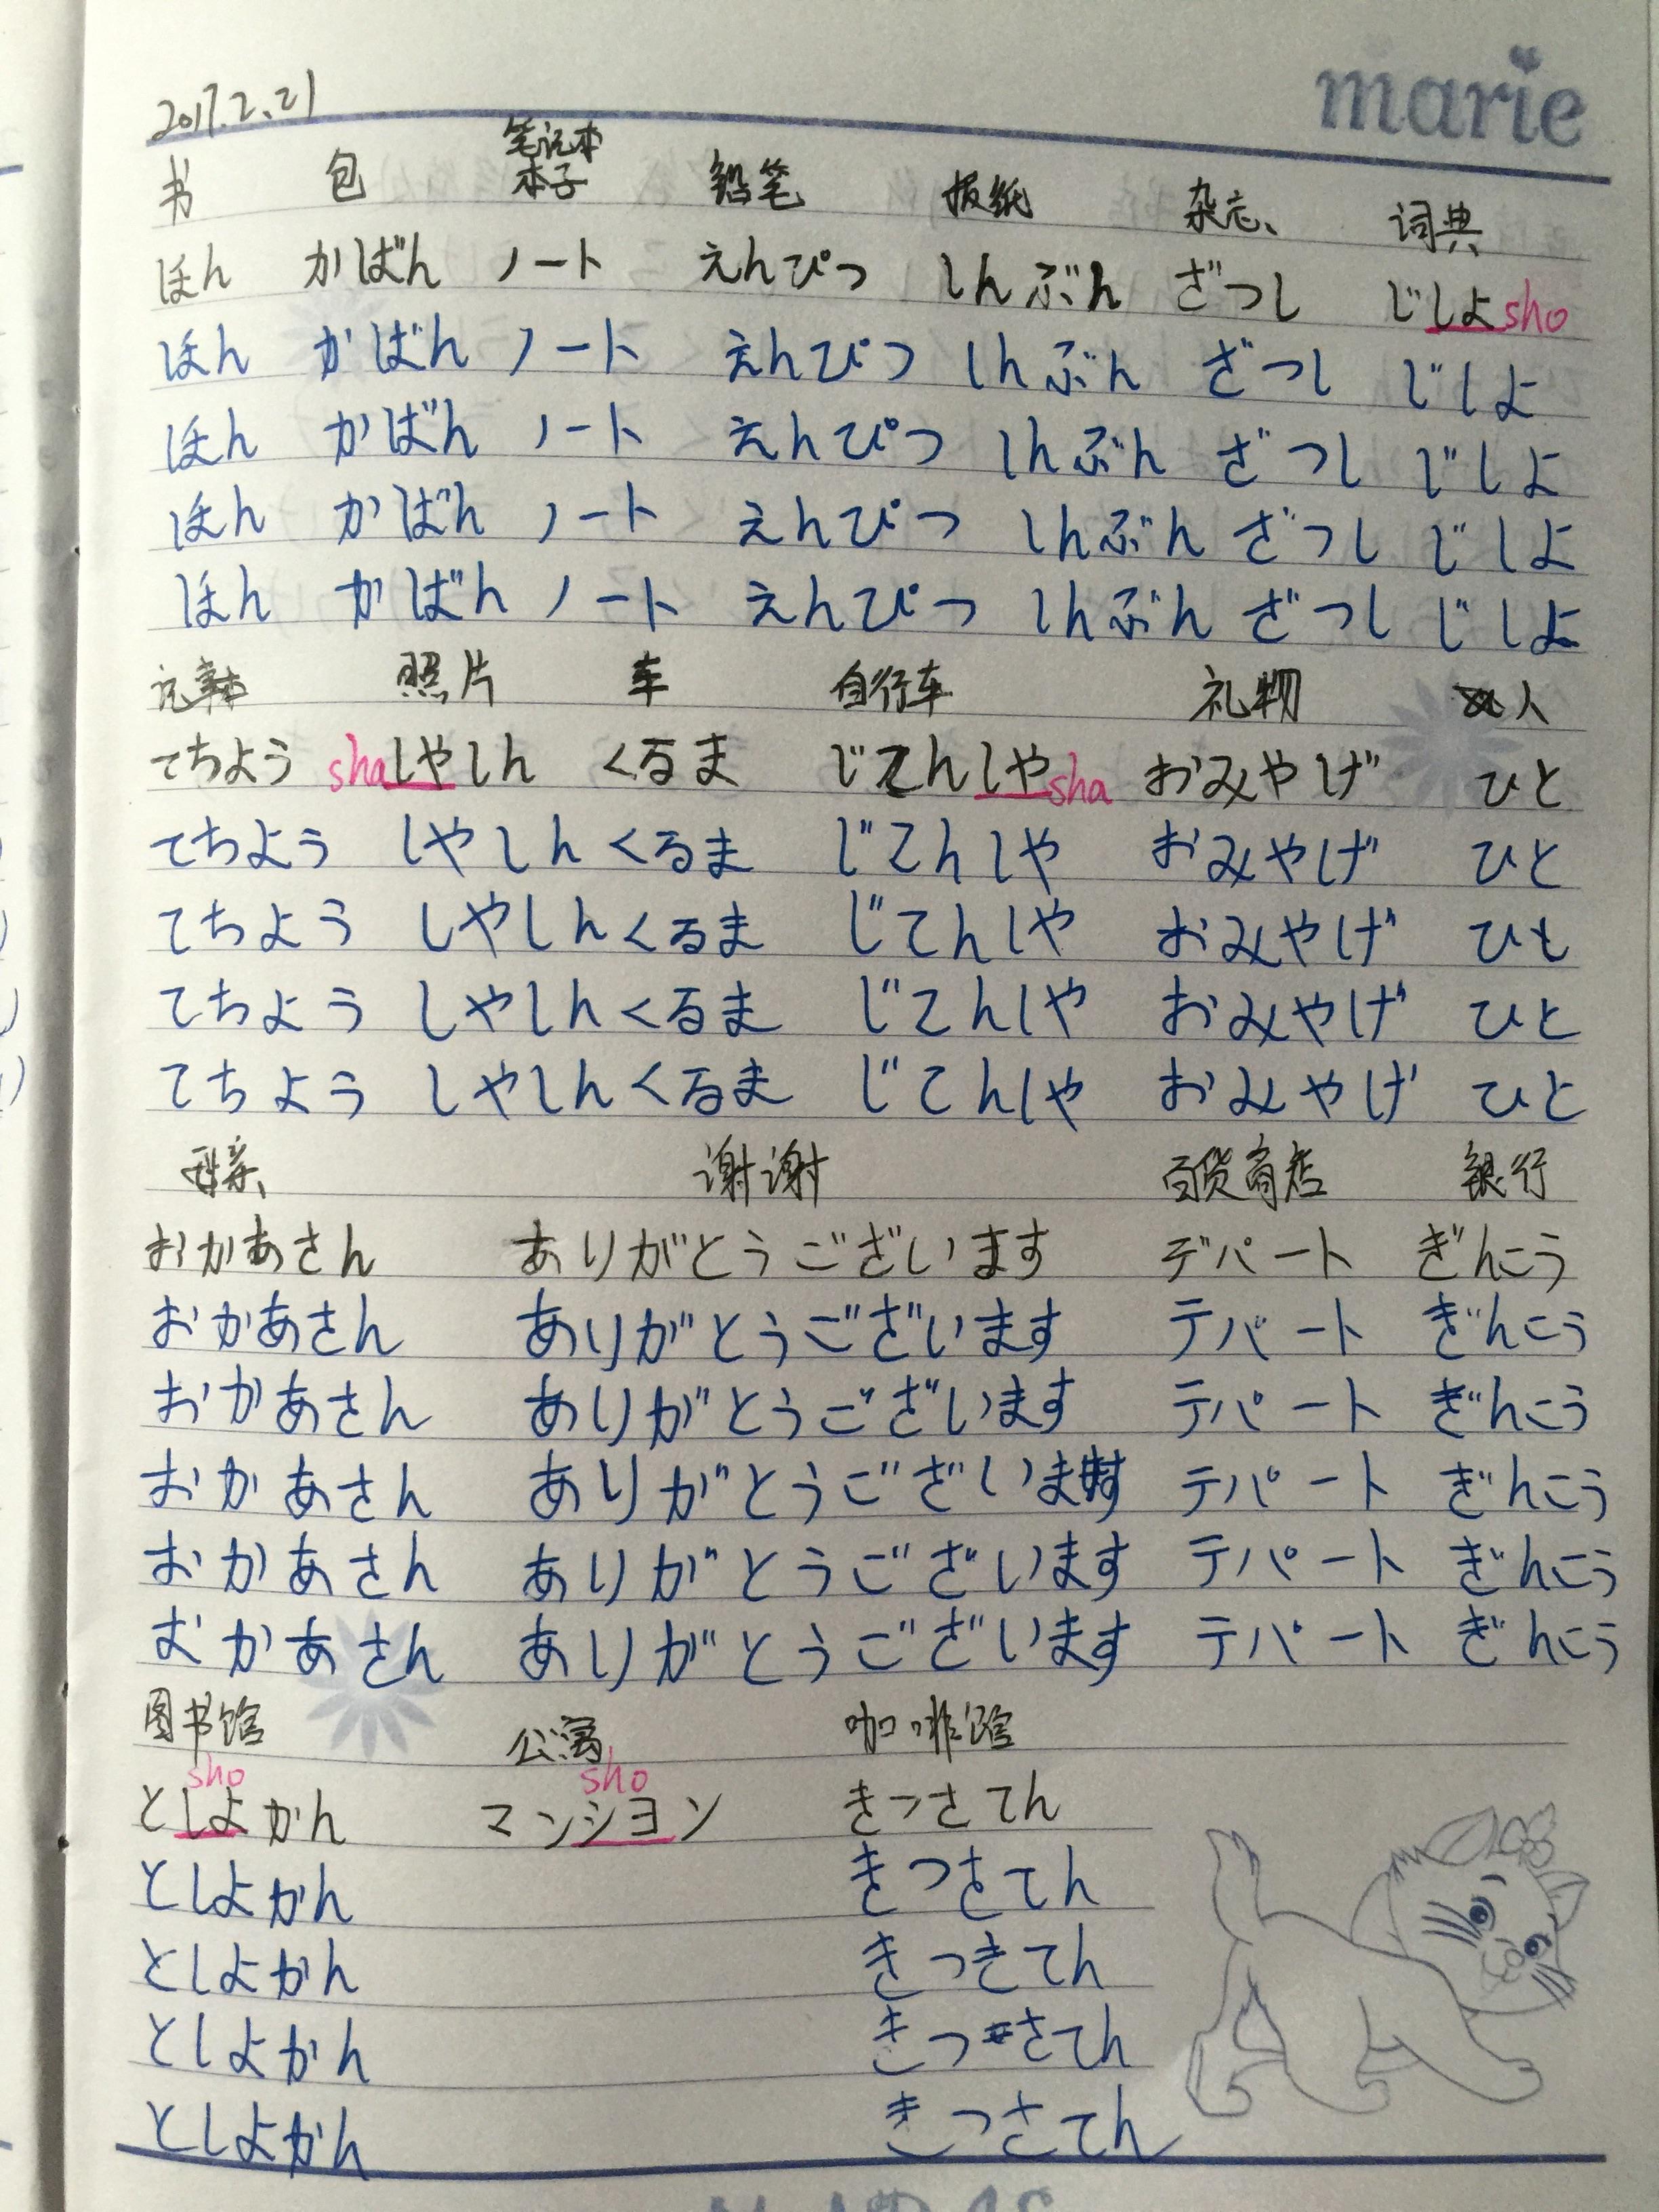 marie
2017.2.21
书 包 笔记本 本子 铅笔 报纸 杂志 词典
ほん かばん ノート えんぴつ しんぶん ざっし じしょ sho
ほん かばん ノート えんぴつ しんぶん ざっし じしょ
ほん かばん ノート えんぴつ しんぶん ざっし じしょ
ほん かばん ノート えんぴつ しんぶん ざっし じしょ
ほん かばん ノート えんぴつ しんぶん ざっし じしょ
照片 车 自行车 礼物 人
てちょう sha しゃしん くるま じてんしゃ sha おみやげ ひと
てちょう しゃしん くるま じてんしゃ おみやげ ひと
てちょう しゃしん くるま じてんしゃ おみやげ ひと
てちょう しゃしん くるま じてんしゃ おみやげ ひと
てちょう しゃしん くるま じてんしゃ おみやげ ひと
谢谢 百货商店 银行
おかあさん ありがとうございます デパート ぎんこう
おかあさん ありがとうございます デパート ぎんこう
おかあさん ありがとうございます デパート ぎんこう
おかあさん ありがとうございます デパート ぎんこう
おかあさん ありがとうございます デパート ぎんこう
おかあさん ありがとうございます デパート ぎんこう
图书馆 公寓 咖啡馆
sho sho
としょかん マンション きっさてん
としょかん きっさてん
としょかん きっさてん
としょかん きっさてん
としょかん きっさてん